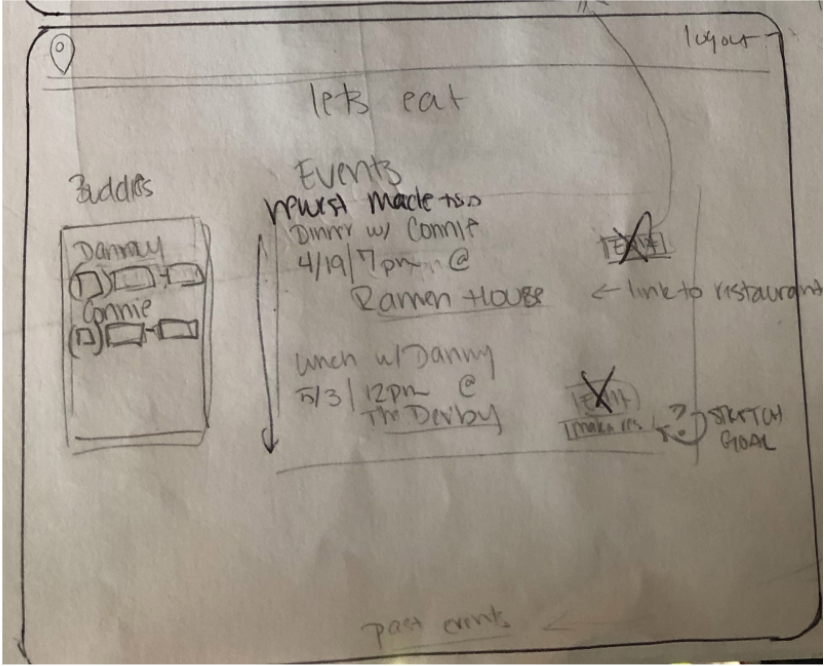 logout
lets eat
Buddies
Events
newest made
Danny
Connie
Dinner w/ Connie
4/19 | 7pm @
Ramen House
← link to restaurant
Lunch w/ Danny
5/3 | 12pm @
The Derby
make res
?
STRETCH
GOAL
past events ←